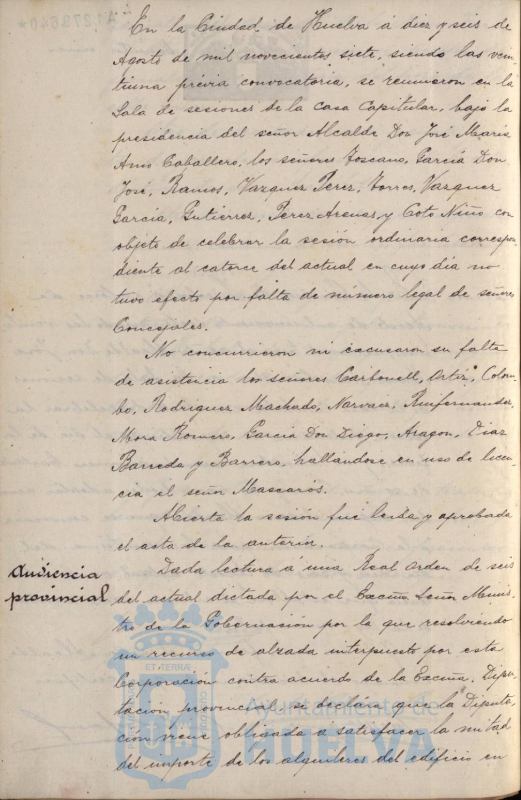 En la Ciudad de Huelva á diez y seis de
Agosto de mil novecientos siete, siendo las vein
tiuna prévia convocatoria, se reunieron en la
Sala de sesiones de la casa Capitular, bajo la
presidencia del señor Alcalde Don José Maria
Amo Caballero, los señores Toscano, Garcia Don
José, Ramos, Vazquez Perez, Torres, Vazquez
Garcia, Gutierrez, Perez Arenas, y Coto Niño con
objeto de celebrar la sesión ordinaria correspon
diente al catorce del actual en cuyo dia no
tuvo efecto por falta de número legal de señores
Concejales.
No concurrieron ni excusaron su falta
de asistencia los señores Carbonell, Ortiz, Colom-
bo, Rodriguez Machado, Narvaez, Ruifernandez,
Mora Romero, Garcia Don Diego, Aragon, Diaz
Barreda y Barrero, hallandose en uso de licen
cia el señor Mascarós.
Abierta la sesión fué leida y aprobada
el acta de la anterior.
Audiencia
provincial
Dada lectura á una Real Orden de seis
del actual dictada por el Excmo. Señor Minis
tro de la Gobernación por la que resolviendo
un recurso de alzada interpuesto por esta
Corporación contra acuerdo de la Excma. Dipu
tación provincial, se declara que la Diputa
ción viene obligada á satisfacer la mitad
del importe de los alquileres del edificio en
ET TERRÆ
Ayuntamiento de
HUELVA